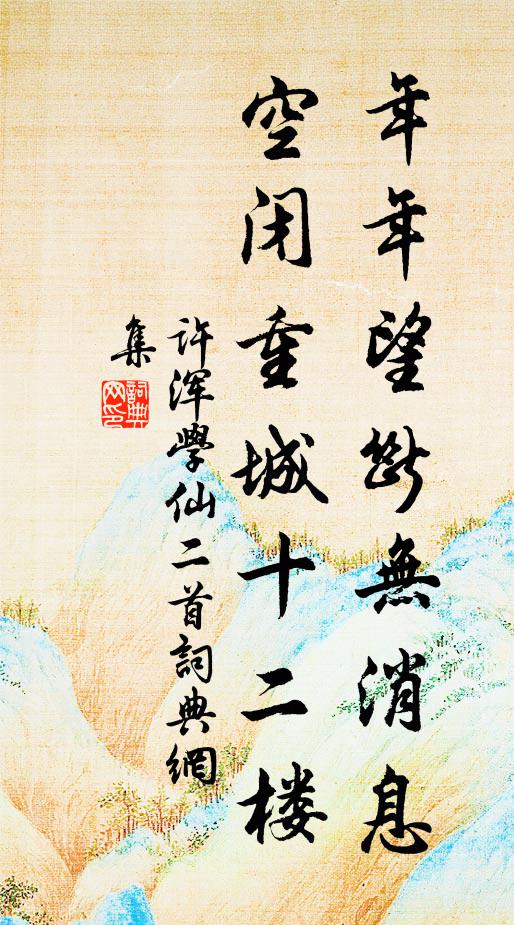 年年望斷無消息
空闭重城十二楼
许浑學仙二首詞典網
集
詞典网印